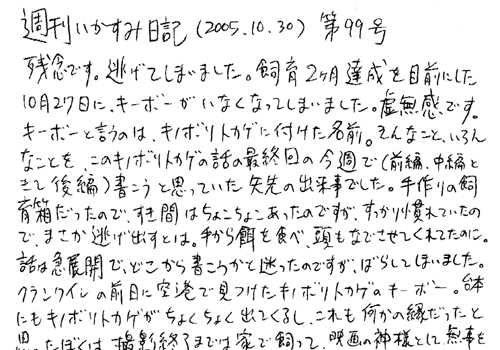 週刊いかすみ日記(2005.10.30) 第99号
残念です。逃げてしまいました。飼育2ヶ月達成を目前にした
10月27日に、キーボーがいなくなってしまいました。虚無感です。
キーボーと言うのは、キノボリトカゲに付けた名前。そんなこと、いろん
なことを、このキノボリトカゲの話の最終回の今週で(前編、中編と
きて後編)書こうと思っていた矢先の出来事でした。手作りの飼
育箱だったので、すき間はちょこちょこあったのですが、すっかり慣れていたの
で、まさか逃げ出すとは。手から餌を食べ、頭もなでさせてくれてたのに。
話は急展開で、どこから書こうかと迷ったのですが、ばらしてしまいました。
クランクインの前日に空港で見つけたキノボリトカゲのキーボー。台本
にもキノボリトカゲがちょくちょく出てくるし、これも何かの縁だったと
思ったぼくは、撮影終了までは家で飼って、映画の神様として、無事を